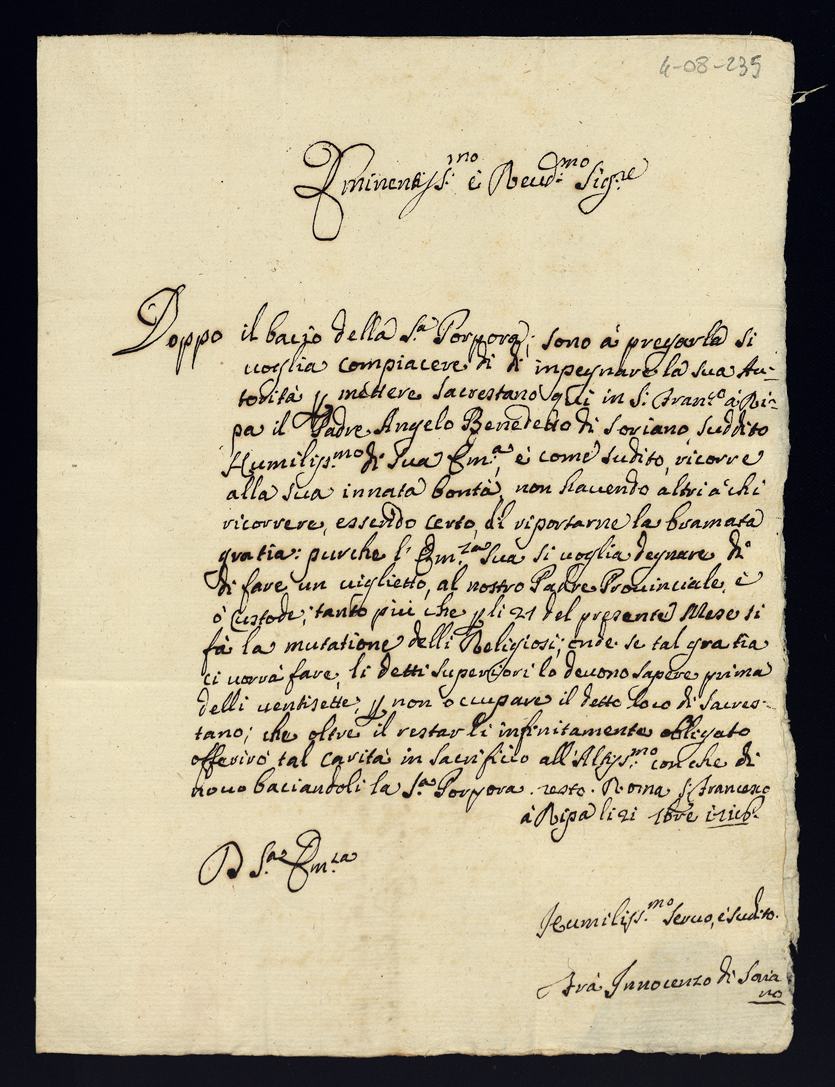 4-08-235
Eminentiss:mo è Reud:mo Sig:re
Doppo il bacio della S:a Porpora; sono à pregarla si
voglia compiacere di di impegnare la sua Au-
torità p mettere sacrestano qui in S: Fran:co a Ri-
pa il Padre Angelo Benedetto di Soriano suddito
Humiliss:mo di sua Em:a, è come sudito, ricorre
alla sua innata bontà, non havendo altri à chi
ricorrere, essendo certo, di riportarne la bramata
gratia: purche l' Em:za sua si voglia degnare di
di fare un viglietto, al nostro Padre Provinciale, è
ò Custode; tanto più che p li 27 del presente Mese si
fà la mutatione delli Religiosi; onde se tal gratia
ci vorrà fare, li detti superiori lo devono sapere prima
delli ventisette, p non occupare il detto loco di Sacres-
tano; che oltre il restarli infinitamente obligato
offerirò tal carità in sacrificio all'Altiss:mo con che di
novo baciandoli la S:a Porpora. resto. Roma S: Francesco
à Ripa li 21
D S:a Em:za
Humiliss:mo servo, è sudito.
Frà Innocenzo di Soria
no